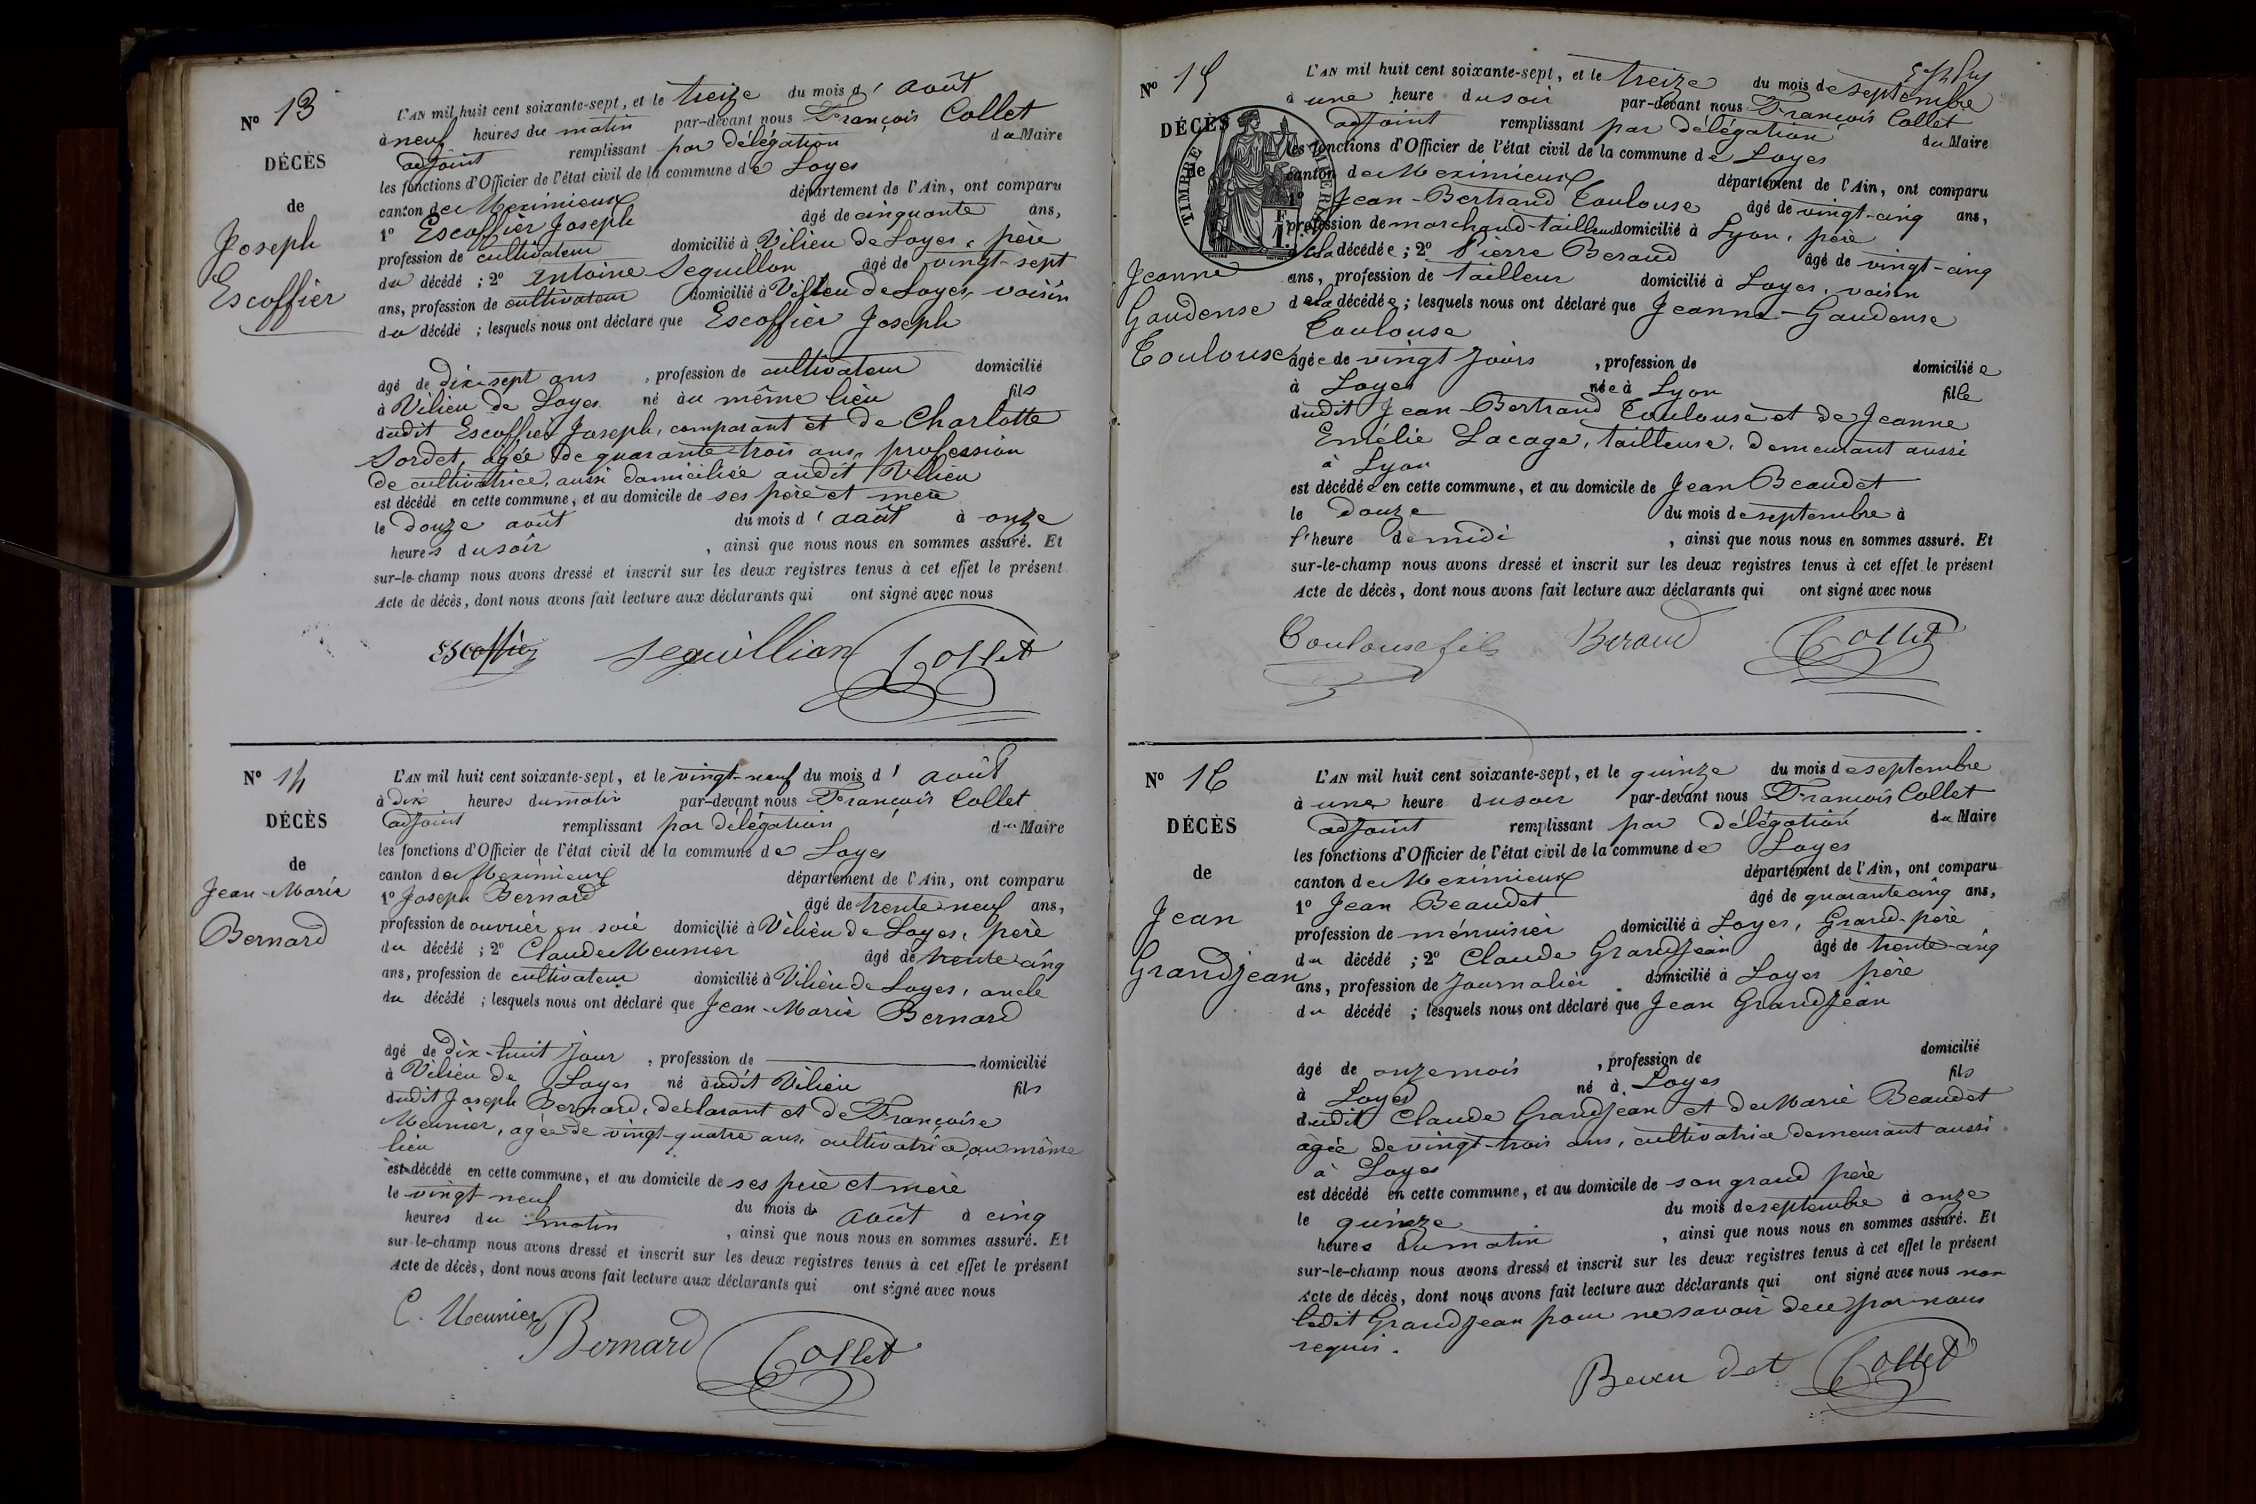 N° 13
DÉCÈS
de
Joseph
Escoffier
L'AN mil huit cent soixante-sept, et le treize du mois d' août
à neuf heures du matin par-devant nous François Collet
adjoint remplissant par délégation du Maire
les fonctions d'Officier de l'état civil de la commune de Loyes
canton de Meximieux département de l'Ain, ont comparu
1° Escoffier Joseph âgé de cinquante ans,
profession de cultivateur domicilié à Vilieu de Loyes, père
du décédé ; 2° Antoine Seguillon âgé de vingt-sept
ans, profession de cultivateur domicilié à Vilieu de Loyes, voisin
du décédé ; lesquels nous ont déclaré que Escoffier Joseph
âgé de dix-sept ans , profession de cultivateur domicilié
à Vilieu de Loyes né au même lieu fils
dudit Escoffier Joseph, comparant et de Charlotte
Sordet, agée de quarante-trois ans, profession
de cultivatrice, aussi domiciliée audit Vilieu
est décédé en cette commune, et au domicile de ses père et mère
le douze août du mois d' août à onze
heures du soir , ainsi que nous nous en sommes assuré. Et
sur-le-champ nous avons dressé et inscrit sur les deux registres tenus à cet effet le présent
Acte de décès, dont nous avons fait lecture aux déclarants qui ont signé avec nous
Escoffier Seguillion Collet
N° 14
DÉCÈS
de
Jean-Marie
Bernard
L'AN mil huit cent soixante-sept, et le vingt-neuf du mois d' août
à dix heures du matin par-devant nous François Collet
adjoint remplissant par délégation du Maire
les fonctions d'Officier de l'état civil de la commune de Loyes
canton de Meximieux département de l'Ain, ont comparu
1° Joseph Bernard âgé de trente-neuf ans,
profession de ouvrier en soie domicilié à Vilieu de Loyes, père
du décédé ; 2° Claude Meunier âgé de trente cinq
ans, profession de cultivateur domicilié à Vilieu de Loyes, oncle
du décédé ; lesquels nous ont déclaré que Jean-Marie Bernard
âgé de dix-huit jour , profession de domicilié
à Vilieu de Loyes né audit Vilieu fils
dudit Joseph Bernard, déclarant et de Françoise
Meunier, agée de vingt-quatre ans, cultivatrice au même
lieu
est décédé en cette commune, et au domicile de ses père et mère
le vingt-neuf du mois d' août à cinq
heures du matin , ainsi que nous nous en sommes assuré. Et
sur-le-champ nous avons dressé et inscrit sur les deux registres tenus à cet effet le présent
Acte de décès, dont nous avons fait lecture aux déclarants qui ont signé avec nous
C. Meunier Bernard Collet
N° 15
DÉCÈS
de
Jeanne
Gaudense
Toulouse
TIMBRE IMPERIAL
L'AN mil huit cent soixante-sept, et le treize du mois de septembre
à une heure du soir par-devant nous François Collet
adjoint remplissant par délégation du Maire
les fonctions d'Officier de l'état civil de la commune de Loyes
canton de Meximieux département de l'Ain, ont comparu
1° Jean-Bertrand Toulouse âgé de vingt-cinq ans,
profession de marchand-tailleur domicilié à Lyon, père
de la décédée ; 2° Pierre Beraud âgé de vingt-cinq
ans, profession de tailleur domicilié à Loyes, voisin
de la décédée ; lesquels nous ont déclaré que Jeanne-Gaudense
Toulouse
âgée de vingt jours , profession de domiciliée
à Loyes née à Lyon fille
dudit Jean-Bertrand Toulouse et de Jeanne
Emélie Lacage, tailleuse, demeurant aussi
à Lyon
est décédée en cette commune, et au domicile de Jean Beaudet
le douze du mois de septembre à
l'heure de midi , ainsi que nous nous en sommes assuré. Et
sur-le-champ nous avons dressé et inscrit sur les deux registres tenus à cet effet le présent
Acte de décès, dont nous avons fait lecture aux déclarants qui ont signé avec nous
Toulouse fils Beraud Collet
N° 16
DÉCÈS
de
Jean
Grandjean
L'AN mil huit cent soixante-sept, et le quinze du mois de septembre
à une heure du soir par-devant nous François Collet
adjoint remplissant par délégation du Maire
les fonctions d'Officier de l'état civil de la commune de Loyes
canton de Meximieux département de l'Ain, ont comparu
1° Jean Beaudet âgé de quarante cinq ans,
profession de ménuisier domicilié à Loyes, Grand-père
du décédé ; 2° Claude Grandjean âgé de trente-cinq
ans, profession de journalier domicilié à Loyes père
du décédé ; lesquels nous ont déclaré que Jean Grandjean
âgé de onze mois , profession de domicilié
à Loyes né à Loyes fils
dudit Claude Grandjean et de Marie Beaudet
agée de vingt-trois ans, cultivatrice demeurant aussi
à Loyes
est décédé en cette commune, et au domicile de son grand père
le quinze du mois de septembre à onze
heures du matin , ainsi que nous nous en sommes assuré. Et
sur-le-champ nous avons dressé et inscrit sur les deux registres tenus à cet effet le présent
Acte de décès, dont nous avons fait lecture aux déclarants qui ont signé avec nous non
ledit Grandjean pour ne savoir de ce par nous
requis.
Beaudet Collet